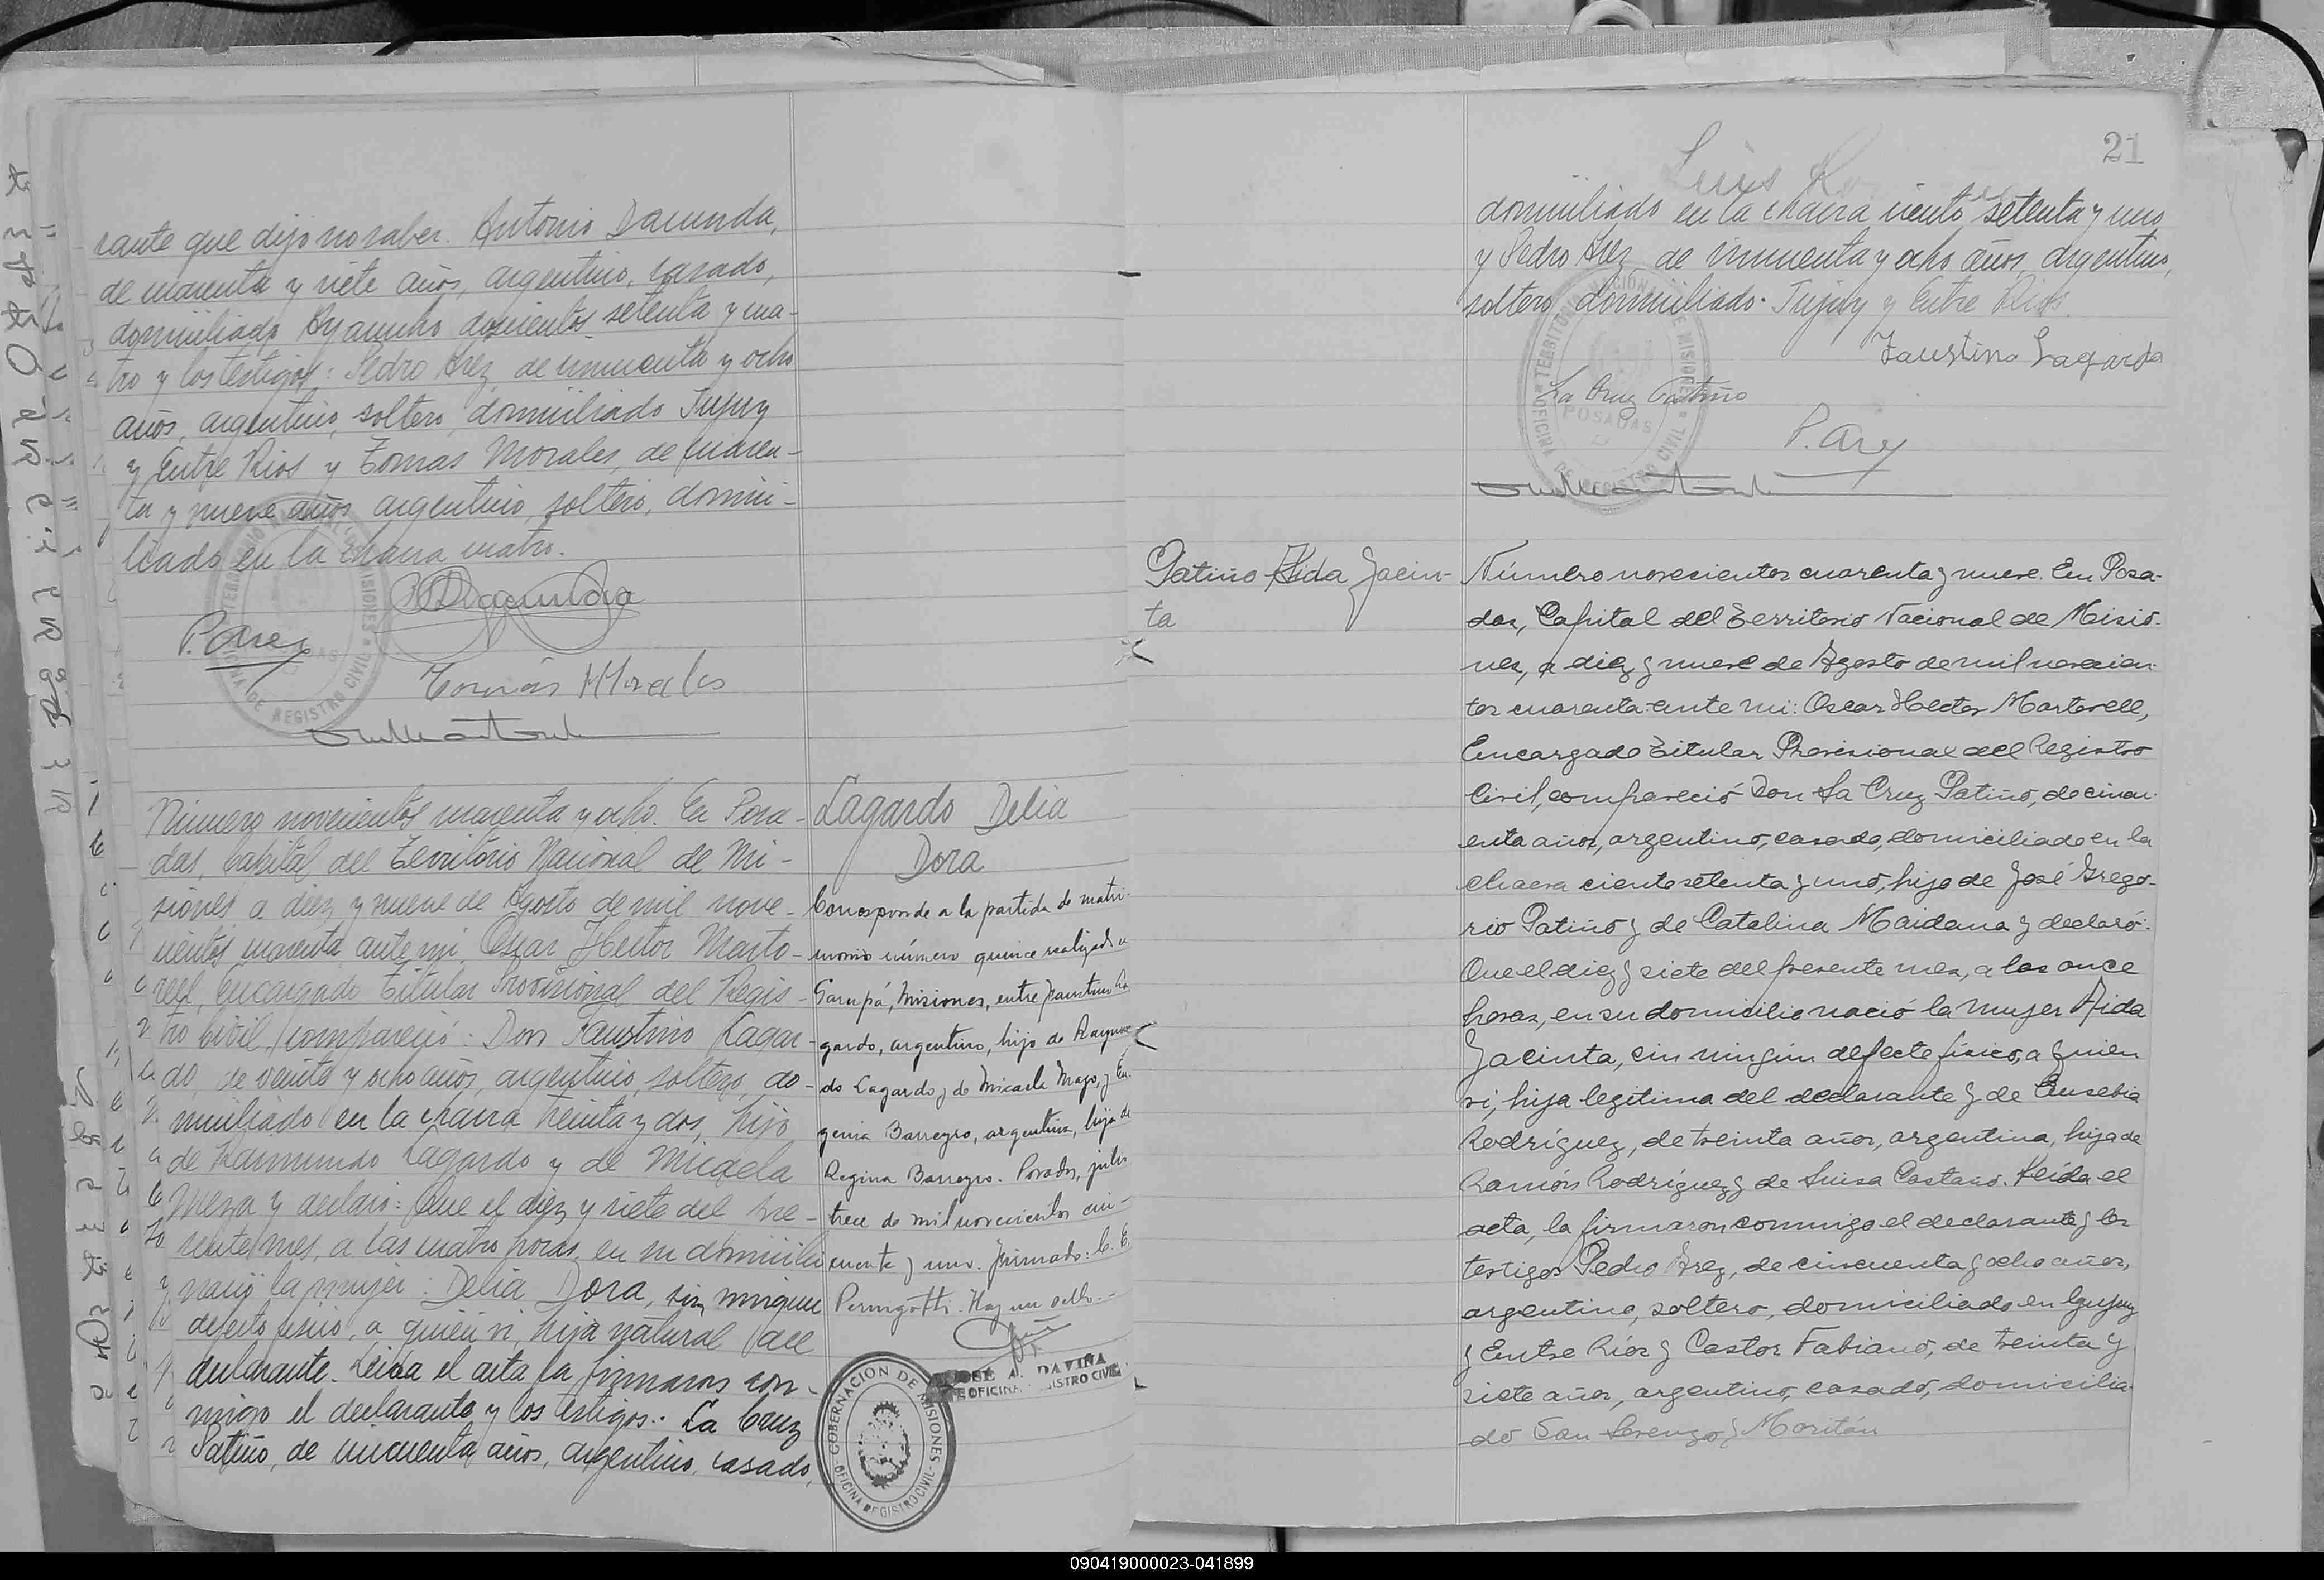 rante que dijo no saber. Antonio Dacunda,
de cuarenta y siete años, argentino, casado,
domiciliado Ayacucho doscientos setenta y cua-
tro y los testigos: Pedro Arez, de cincuenta y ocho
años, argentino, soltero, domiciliado Jujuy
y Entre Rios y Tomas Morales, de cuaren-
ta y nueve años, argentino, soltero, domici-
liado en la chacra cuatro.
P. Arez
Tomás Morales
Número novecientos cuarenta y ocho. En Posa-
das, Capital del Territorio Nacional de Mi-
siones a diez y nueve de Agosto de mil nove-
cientos cuarenta ante mi, Oscar Hector Marto-
rell, Encargado Titular Provisional del Regis-
tro Civil, compareció: Don Faustino Lagar-
do, de veinte y ocho años, argentino, soltero, do-
miciliado en la chacra treinta y dos, hijo
de Raimundo Lagardo y de Micaela
Meza y declaró: Que el diez y siete del pre-
sente mes, a las cuatro horas, en su domicilio
nació la mujer: Delia Dora, sin ningun
defecto fisico, a quién vi, hija natural del
declarante. Leida el acta la firmaron con-
migo el declarante y los testigos: La Cruz
Patiño, de cincuenta años, argentino, casado,
Lagardo Delia
Dora
Corresponde a la partida de matri-
monio número quince realizado en
Garupá, Misiones, entre Faustino La-
gardo, argentino, hijo de Raymun-
do Lagardo y de Micaela Mayo, y Eu-
genia Barreyro, argentina, hija de
Regina Barreyro. Posadas, julio
trece de mil novecientos cin-
cuenta y uno. Firmado: C. E.
Pernigotti. Hay un sello.-
JOSE A. DAVIÑA
GOBERNACION DE MISIONES
OFICINA REGISTRO CIVIL
21
domiciliado en la chacra ciento setenta y uno
y Pedro Arez, de cincuenta y ocho años, argentino,
soltero, domiciliado: Jujuy y Entre Rios.
Faustino Lagardo
La Cruz Patiño
P. Arez
POSADAS
OFICINA DE REGISTRO CIVIL
Patiño Aida Jacin-
ta
Número novecientos cuarenta y nueve. En Posa-
das, Capital del Territorio Nacional de Misio-
nes, a diez y nueve de Agosto de mil novecien-
tos cuarenta ante mi: Oscar Hector Martorell,
Encargado Titular Provisional del Registro
Civil, compareció Don La Cruz Patiño, de cincu-
enta años, argentino, casado, domiciliado en la
chacra ciento setenta y uno, hijo de José Grego-
rio Patiño y de Catalina Maidana y declaró:
Que el diez y siete del presente mes, a las once
horas, en su domicilio nació la mujer Aida
Jacinta, sin ningún defecto físico, a quien
vi, hija legítima del declarante y de Eusebia
Rodríguez, de treinta años, argentina, hija de
Ramón Rodríguez y de Luisa Castaño. Leída el
acta, la firmaron conmigo el declarante y los
testigos Pedro Arez, de cincuenta y ocho años,
argentino, soltero, domiciliado en Jujuy
y Entre Ríos y Castor Fabiano, de treinta y
siete años, argentino, casado, domicilia-
do San Lorenzo y Moritán
090419000023-041899